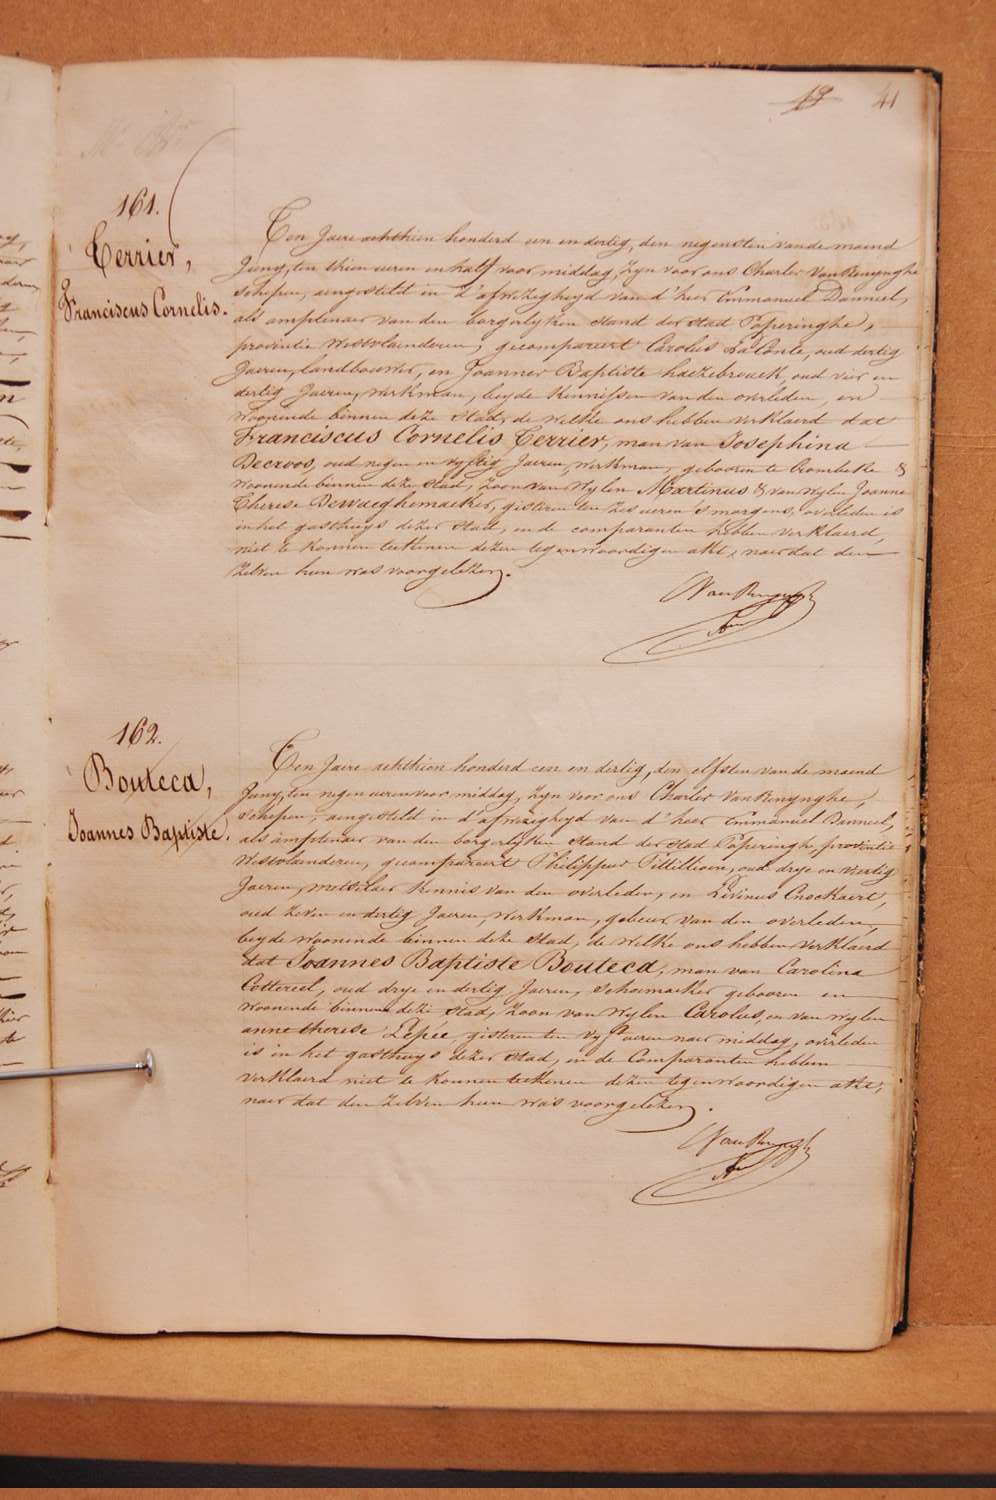 19 41
161.
Terrier,
Franciscus Cornelis.
Ten Jaere achthien honderd een en dertig, den negensten van de maend
Juny, ten thien uren en half voor middag, zyn voor ons Charles VanRenynghe
schepen, aengesteld in d'afwezigheyd van d'heer Emmanuel Danneel,
als amptenaer van den borgerlyken stand der stad Poperinghe,
provintie Westvlaenderen, gecompareert Carolus LaConte, oud dertig
Jaeren, landbouwer, en Joannes Baptiste haezebrouck, oud vier en
dertig Jaeren, werkman, beyde kennissen van den overleden, en
woonende binnen deze stad, de welke ons hebben verklaerd dat
Franciscus Cornelis Terrier, man van Josephina
Decroos, oud negen en vyftig Jaeren, werkman, gebooren te Crombeke &
woonende binnen deze stad, zoon van wylen Martinus & van wylen Joanne
Therese Dewaeghemaeker, gisteren ten zes ueren s'morgens, overleden is
in het gasthuys dezer stad, en de comparanten hebben verklaerd,
niet te konnen teekenen dezen tegenwoordigen akt, naer dat den
zelven hun was voorgelezen.
VanRenynghe
162.
Bouteca,
Joannes Baptiste.
Ten Jaere achthien honderd een en dertig, den elfsten van de maend
Juny, ten negen ueren voor middag, zyn voor ons Charles VanRenynghe,
schepen, aengesteld in d'afwezigheyd van d'heer Emmanuel Danneel,
als amptenaer van den borgerlyken stand der stad Poperinghe, provintie
Westvlaenderen, gecompareert Philippus Pittillioen, oud drye en veertig
Jaeren, metselaer kennis van den overleden, en Livinus Cnockaert,
oud zeven en dertig Jaeren, werkman, gebuer van den overleden,
beyde woonende binnen deze stad, de welke ons hebben verklaerd
dat Joannes Baptiste Bouteca, man van Carolina
Cottereel, oud drye en dertig Jaeren, schoemaeker gebooren en
woonende binnen deze stad, zoon van wylen Carolus, en van wylen
anne therese Lepée, gisteren ten vyf ueren naer middag, overleden
is in het gasthuys dezer stad, en de Comparanten hebben
verklaerd niet te konnen teekenen dezen tegenwoordigen akt,
naer dat den zelven hun was voorgelezen.
VanRenynghe